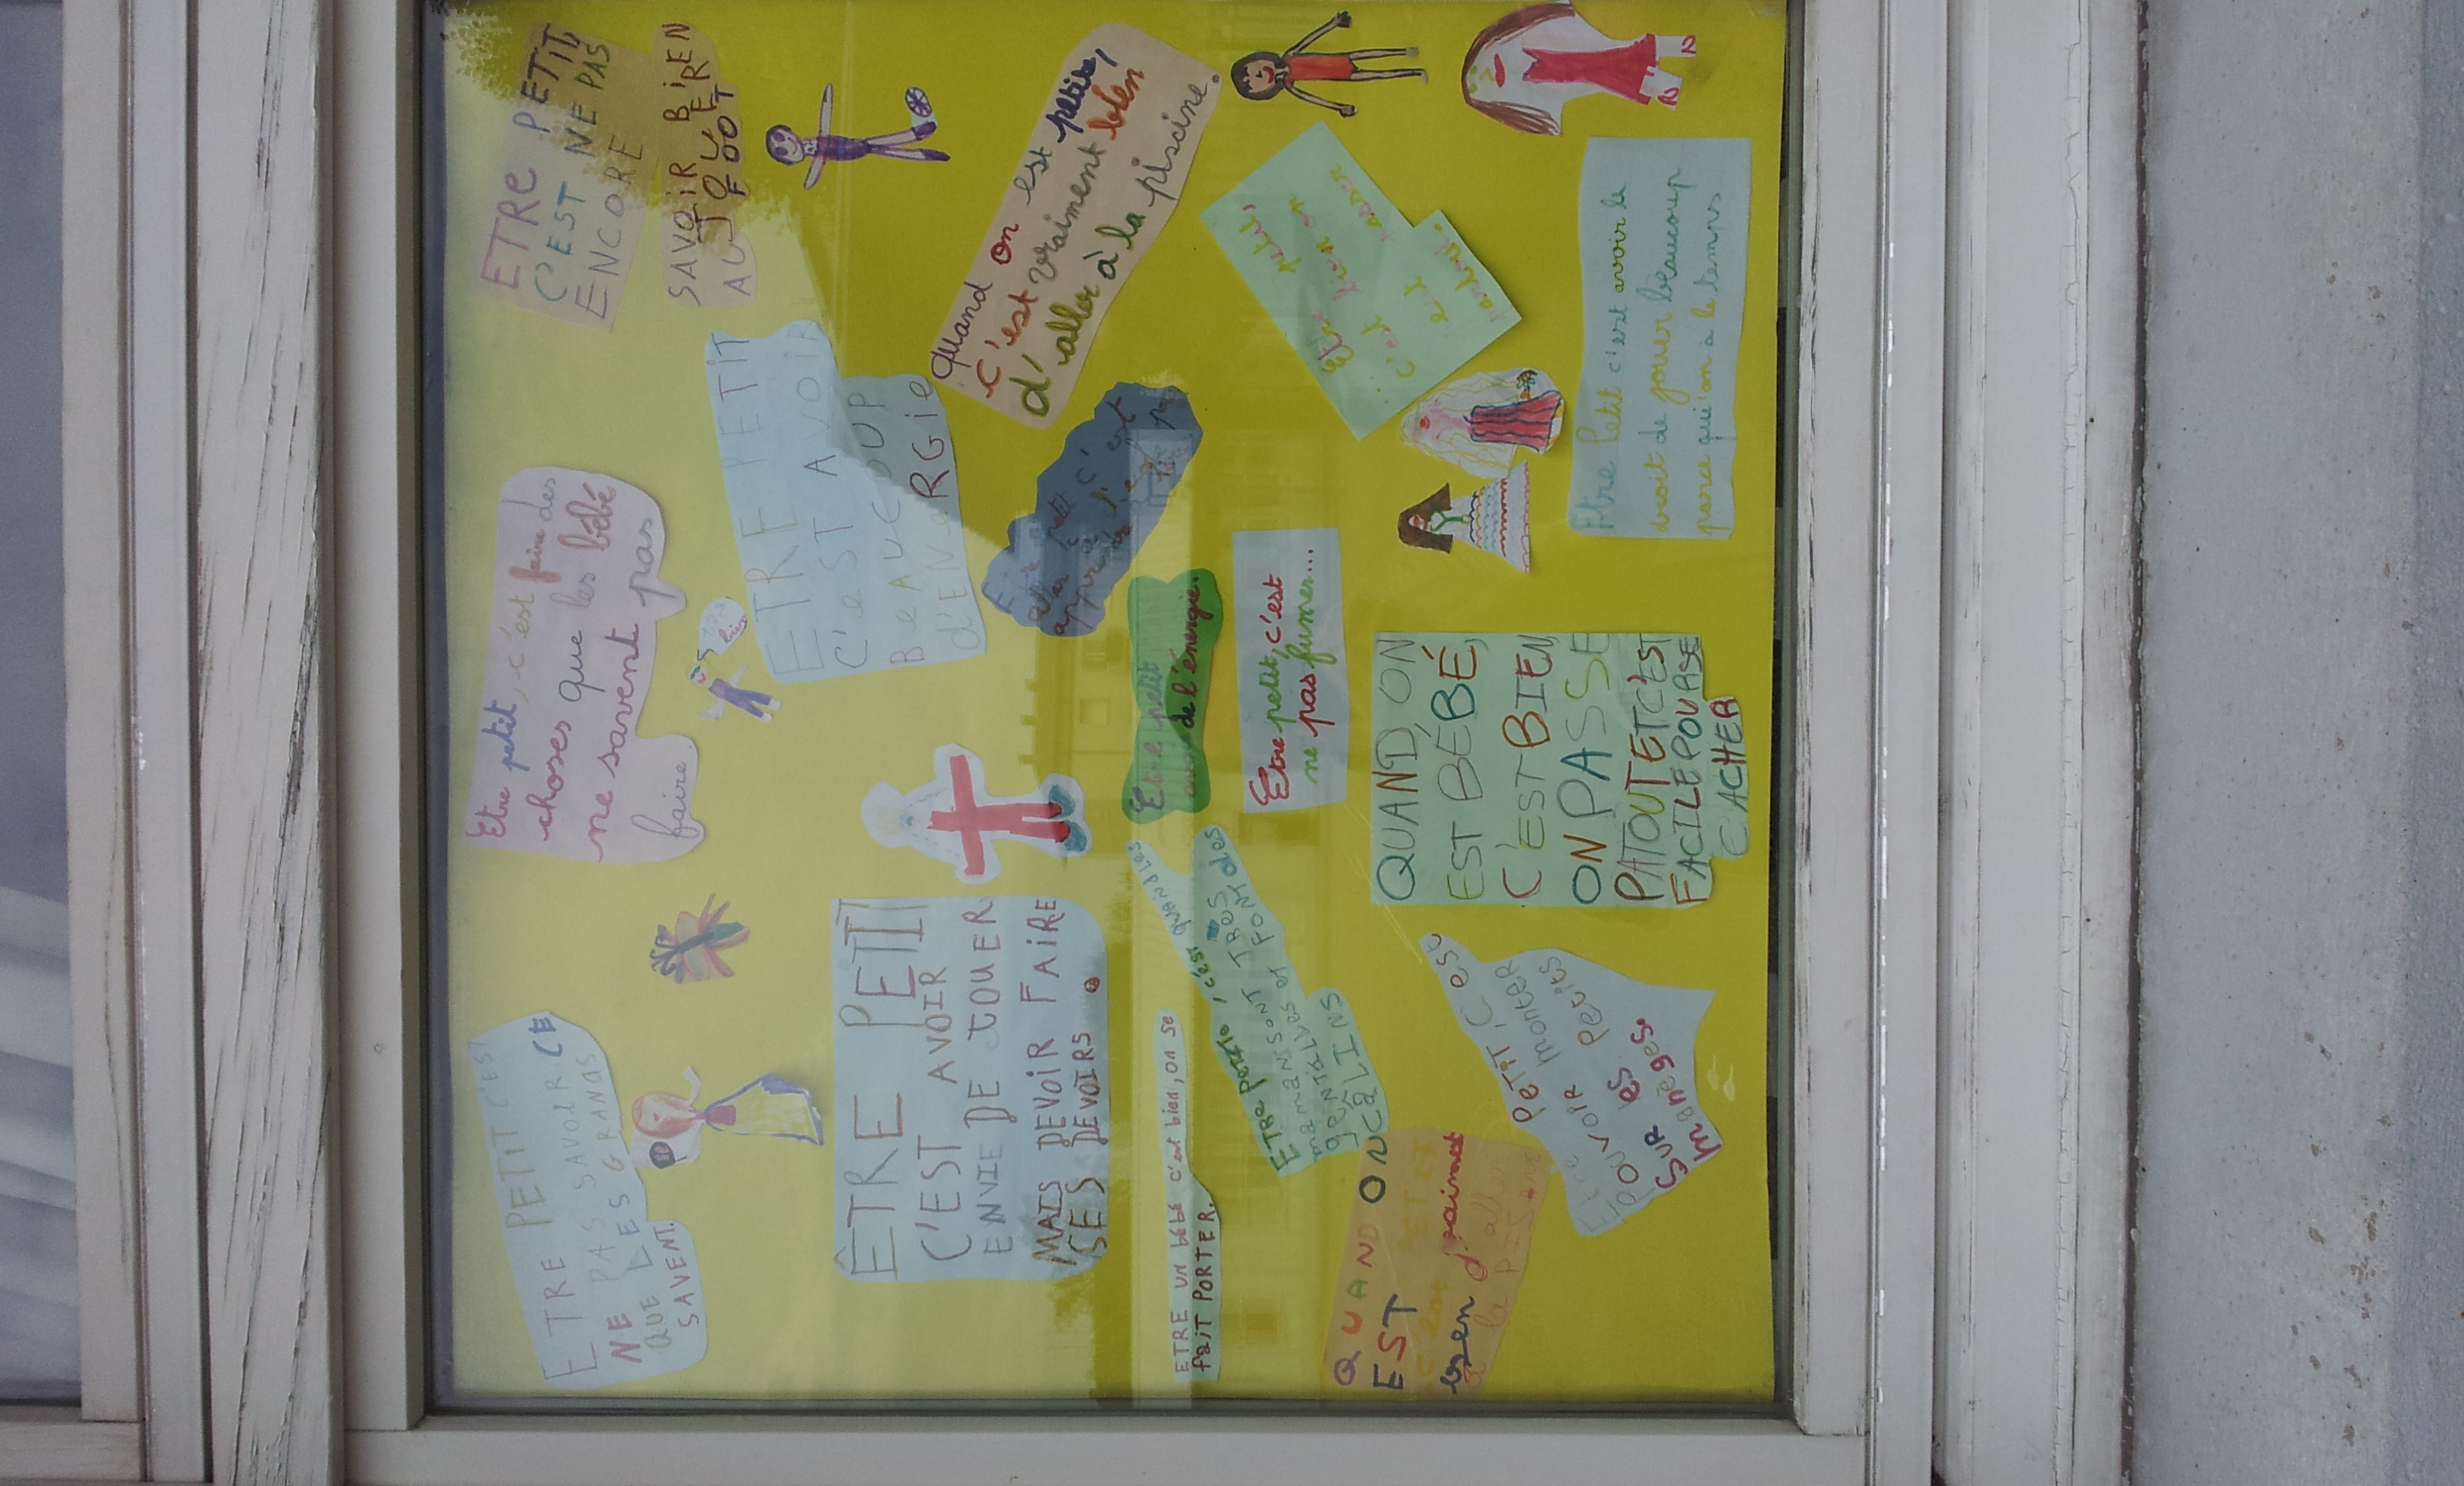 ETRE PETIT C'EST
NE PAS SAVOIR CE
QUE LES GRANDS
SAVENT.
Etre petit, c'est faire des
choses que les bébé
ne savent pas
faire
ETRE PETIT,
C'EST NE PAS
ENCORE
SAVOIR BIEN
JOUER
AU FOOT
ÊTRE PETIT
C'EST AVOIR
ENVIE DE JOUER
MAIS DEVOIR FAIRE
SES DEVOIRS.
bien
ETRE PETIT
C'EST AVOIR
BEAUCOUP
d'ENeRGie
Quand on est petite,
c'est vraiment bien
d'aller à la piscine.
ETRE UN bébé c'est bien, on se
fait PORTER.
ETRE petit, c'est quand les
mamans sont TRES
gentilles et font des
CÂLINS
Etre petit
de l'énergie.
petit c'est
apprendre
Etre petit, c'est
ne pas fumer...
petit,
c'est
QUAND ON
EST
bien
QUAND ON
EST BÉBÉ,
C'EST BIEN
ON PASSE
PATOUT ET C'EST
FACILE POUR SE
CACHER
Etre PETIT, C'est
POUVOIR monter
SUR les petits
manèges.
Etre Petit c'est avoir le
droit de jouer beaucoup
parce qu'on à le temps